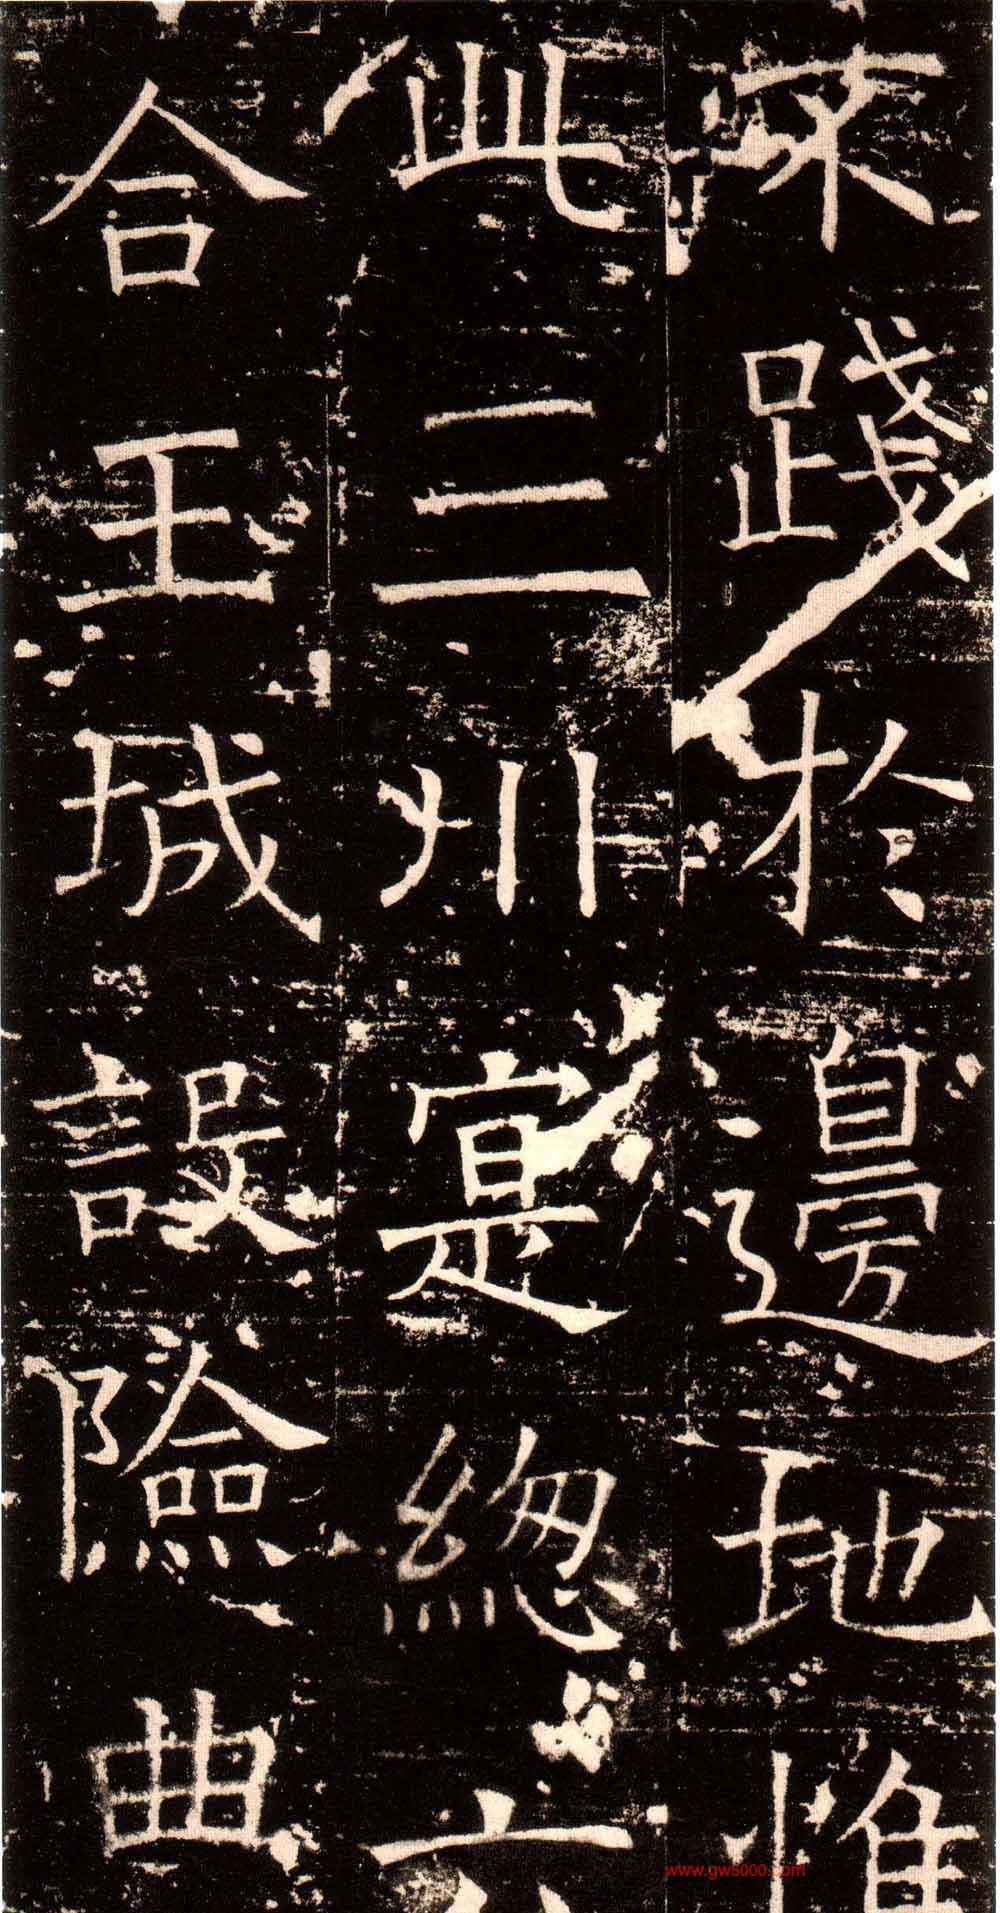 来踐於邊地惟
此三州寔總六
合王城設險曲
www.gw5000.com